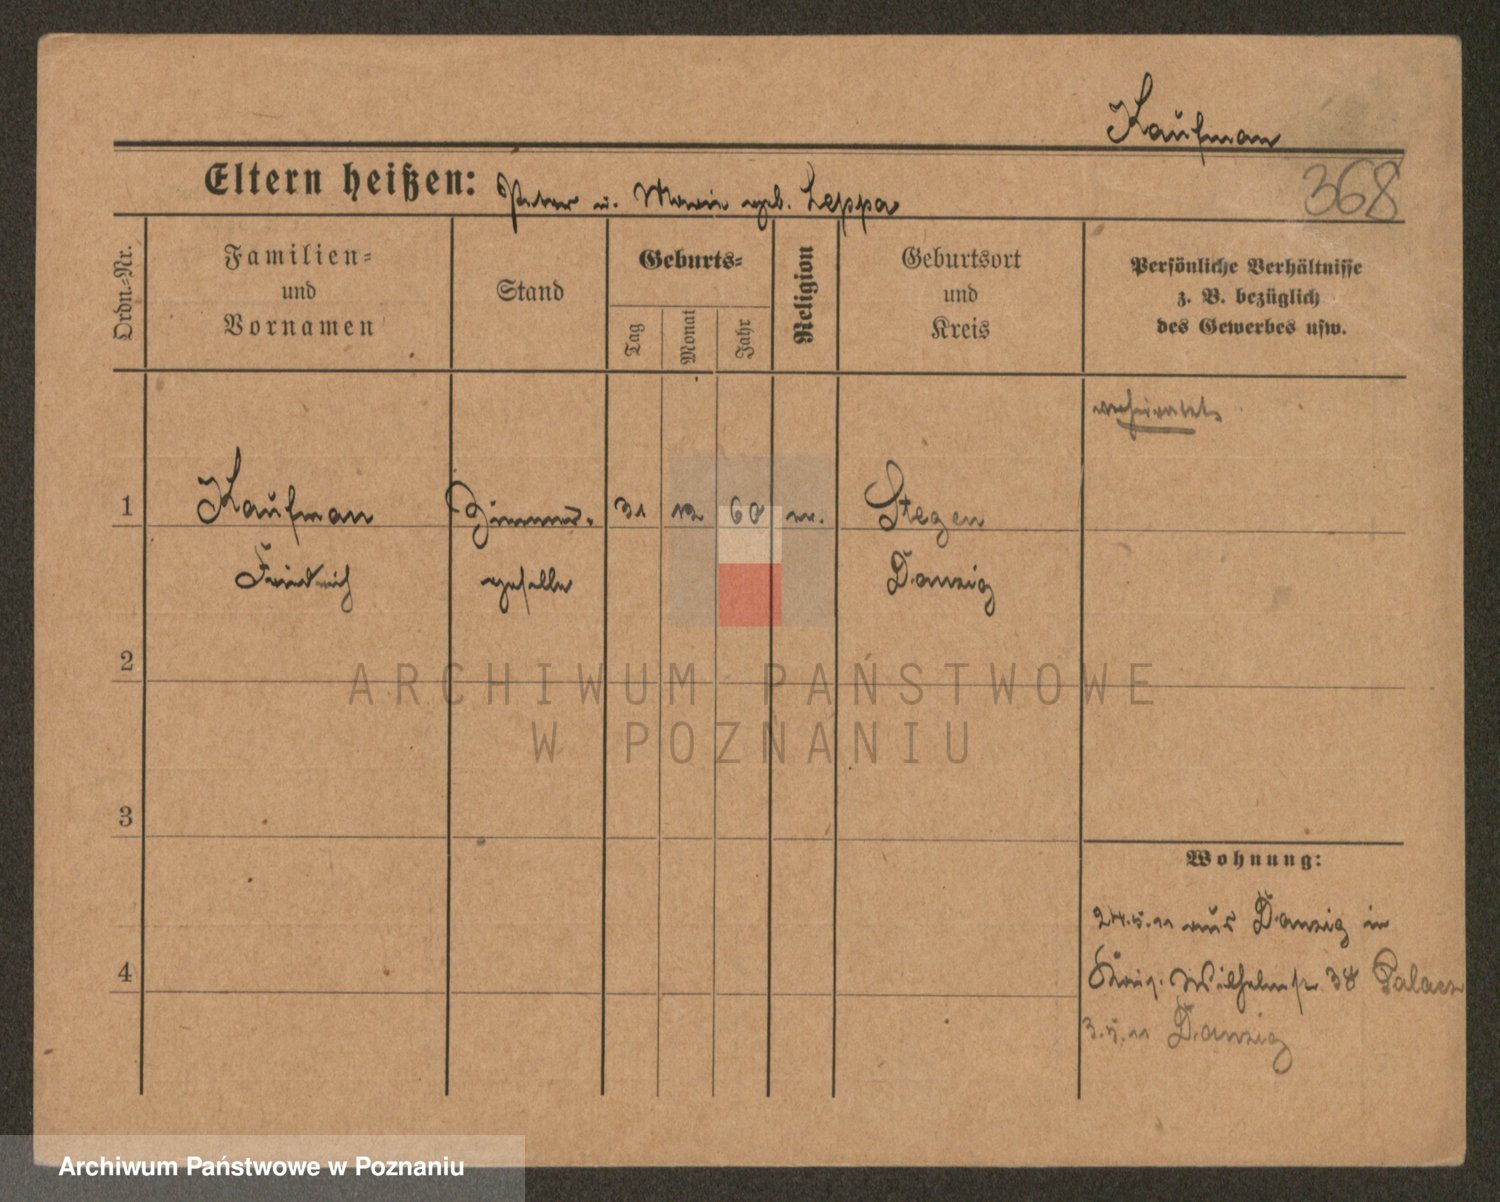 Kaufman
Eltern heißen: Peter u. Marie geb. Leppa
368
Ordn.-Nr.
Familien-
und
Vornamen
Stand
Geburts-
Tag
Monat
Jahr
Religion
Geburtsort
und
Kreis
Persönliche Verhältnisse
z. B. bezüglich
des Gewerbes usw.
verheiratet
1 Kaufman Zimmer- 31 12 60 Stegen
Friedrich geselle Danzig
2
ARCHIWUM PAŃSTWOWE
W POZNANIU
3
Wohnung:
24.5.11 aus Danzig in
4 Wilhelmstr 38 Palacz
3.5.11 Danzig
Archiwum Państwowe w Poznaniu